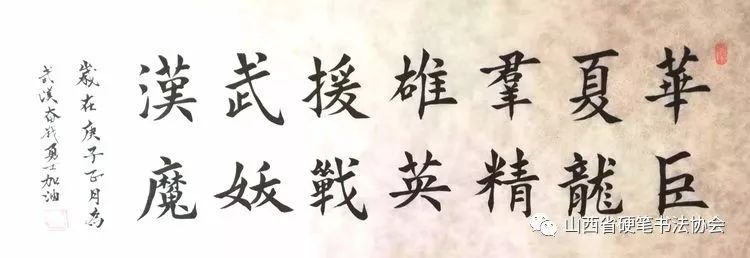 華夏羣雄援武漢
巨龍精英戰妖魔
歲在庚子正月為
武漢奋战勇士加油
山西省硬笔书法协会